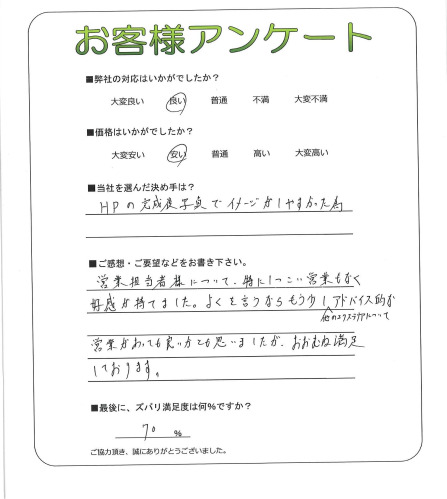 お客様アンケート
■弊社の対応はいかがでしたか?
大変良い 良い 普通 不満 大変不満
■価格はいかがでしたか?
大変安い 安い 普通 高い 大変高い
■当社を選んだ決め手は?
HPの完成度写真でイメージがしやすかった為
■ご感想・ご要望などをお書き下さい。
営業担当者様について、特にしつこい営業もなく
好感が持てました。よくを言うならもう少しアドバイス的な
他のエクステリアについて
営業があっても良いかとも思いましたが、おおむね満足
しております。
■最後に、ズバリ満足度は何%ですか?
70 %
ご協力頂き、誠にありがとうございました。